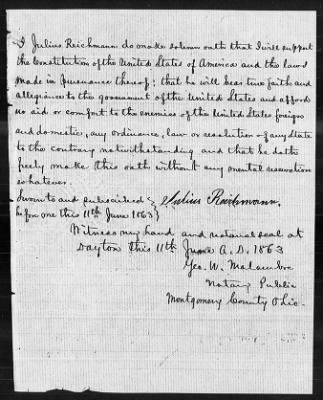 I Julius Reichmann do make solemn oath that I will support
the Constitution of the United States of America and the laws
made in pursuance thereof; that he will bear true faith and
allegiance to the government of the United States and affords
no aid or comfort to the enemies of the United States foreign
and domestic, any ordinance, law or resolution of any State
to the contrary notwithstanding and that he doth
freely make this oath without any mental reservation
whatever.
Sworn to and subscribed } Julius Reichmann,
before me this 11th June 1863 }
Witness my hand and notarial seal at
Dayton this 11th June A. D. 1863
Geo. W. Malambre
Notary Public
Montgomery County Ohio.